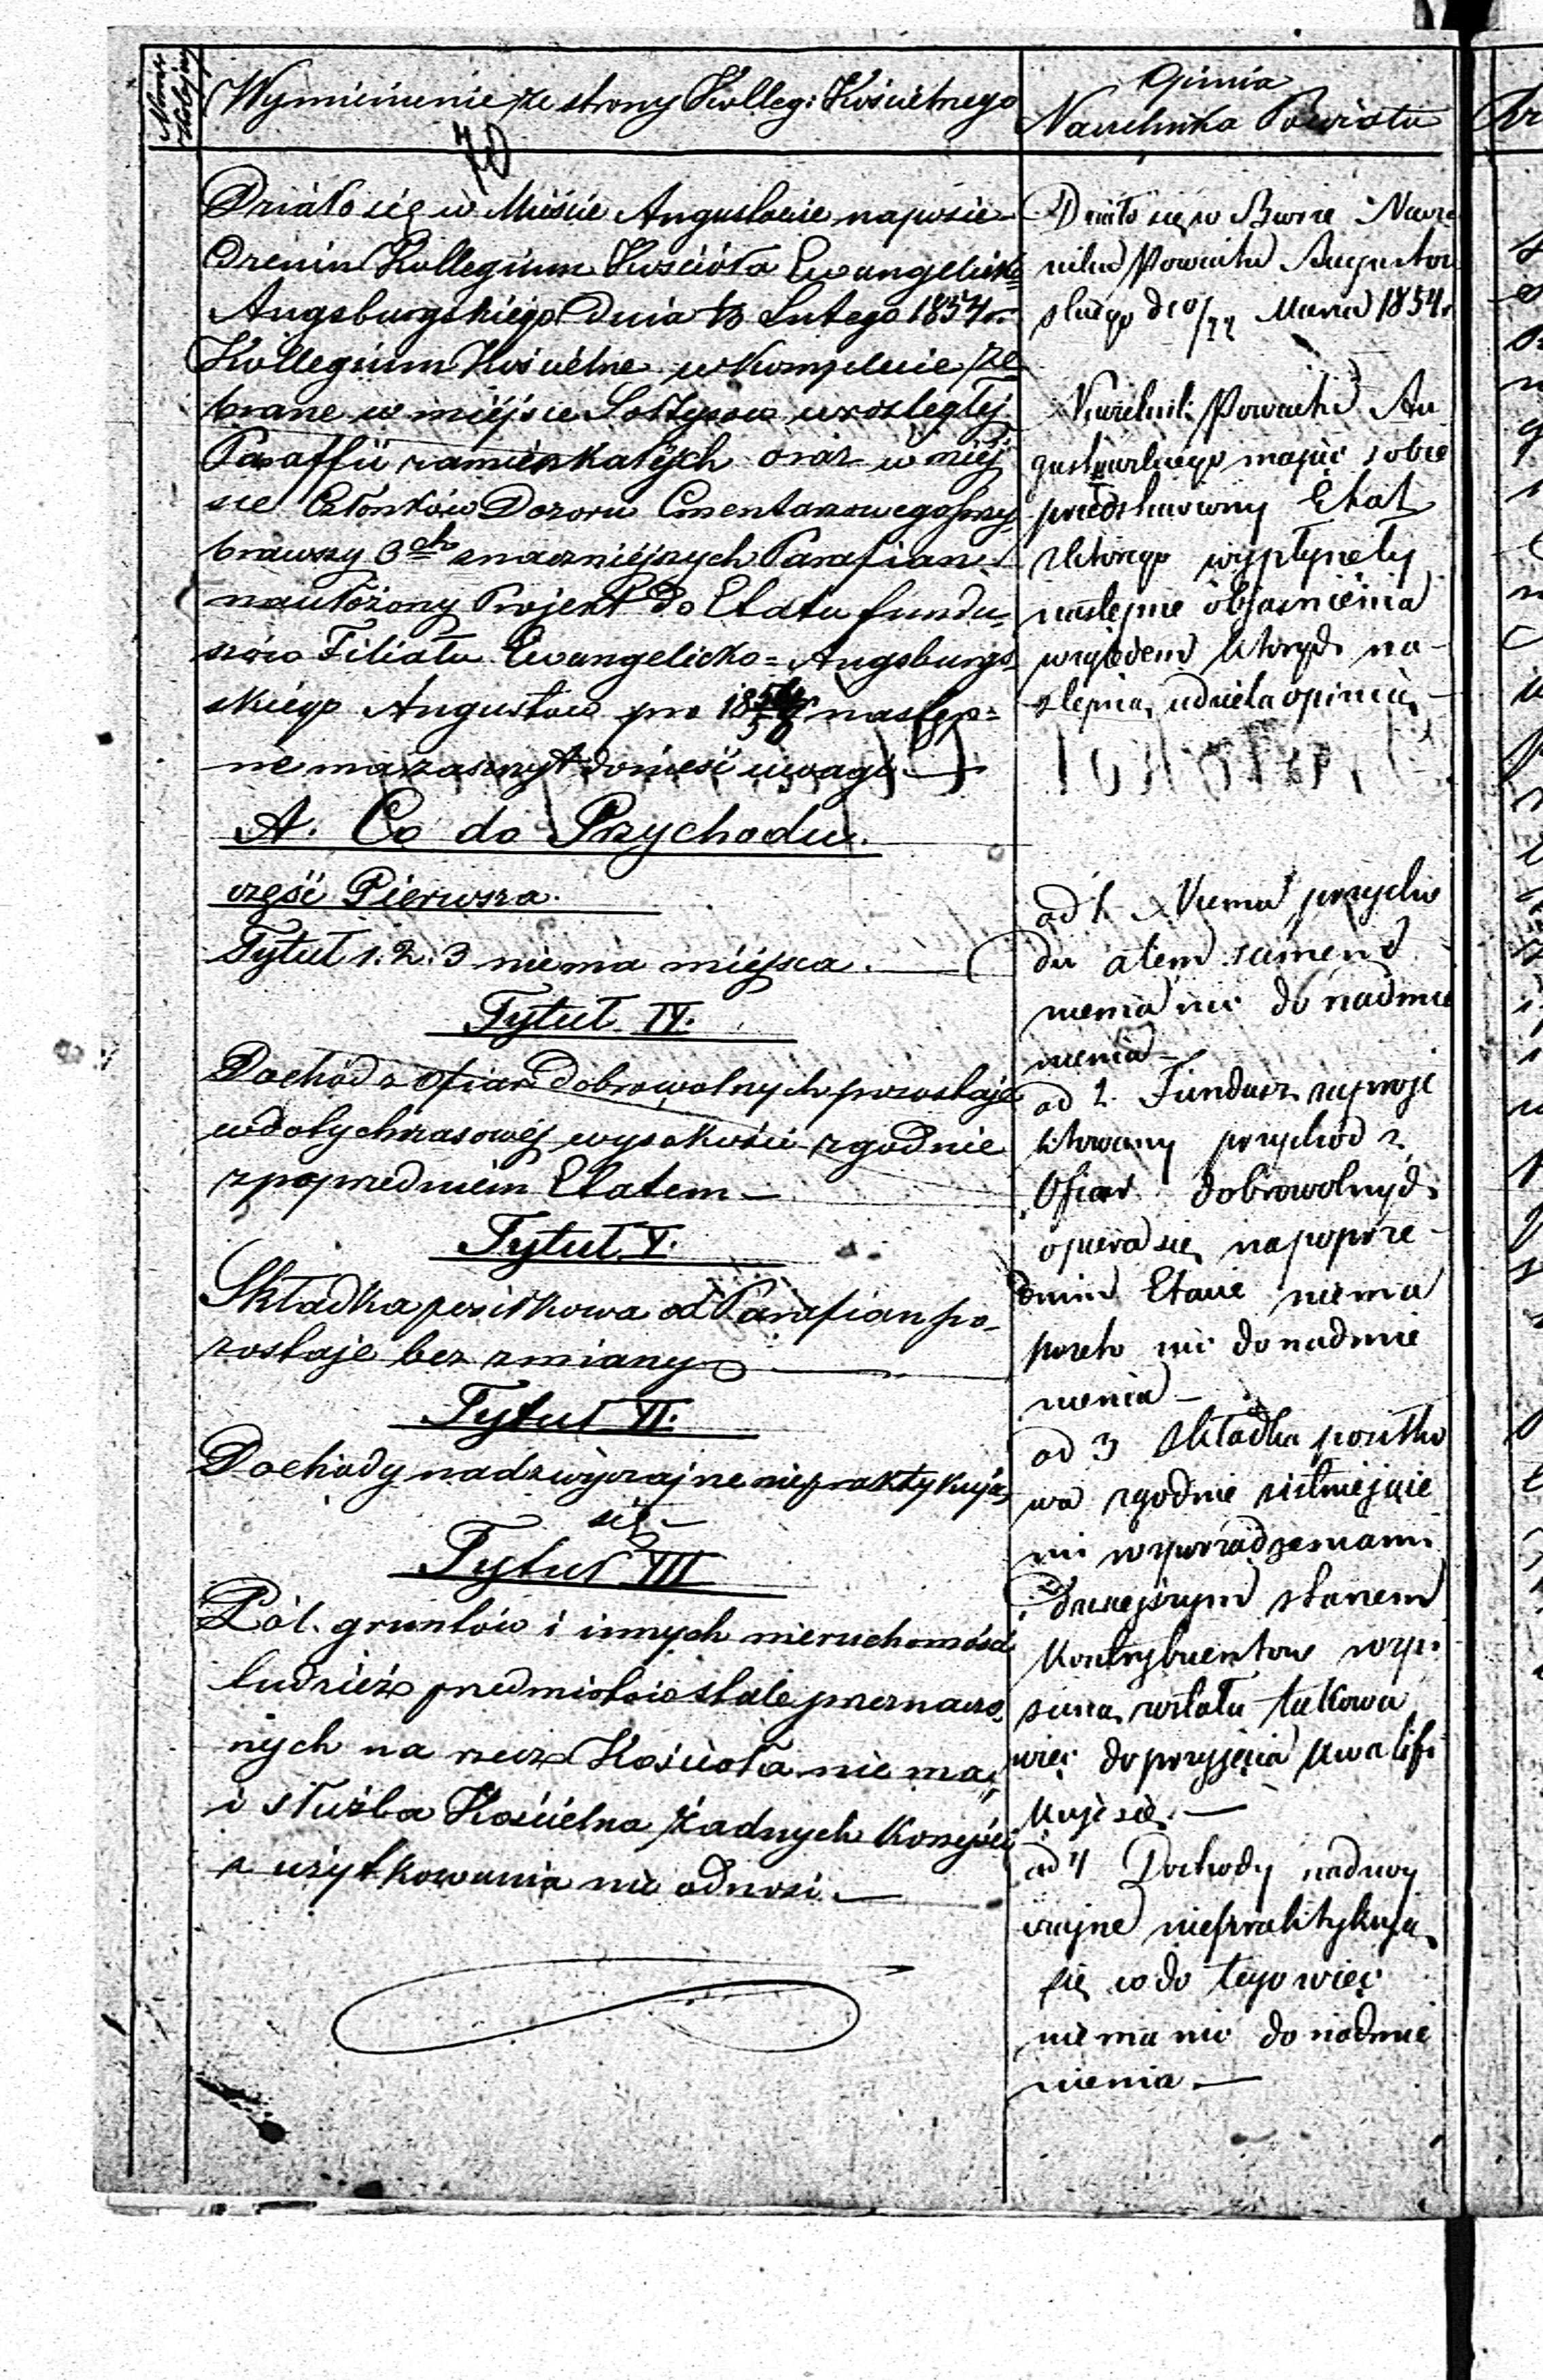 Numer kolejny
Wymienienie ze strony Kolleg: Kościelnego
70
Działo się w Mieście Augustowie na posie-
dzeniu Kollegium Kościoła Ewangelicko=
Augsburgskiego dnia 13 Lutego 1854 r.
Kollegium Kościelne w komplecie ze
brane w miejsce Sołtysow w rozległej
Paraffii zamieszkałych oraz w miej
sce Członków Dozoru Cmentarzowego przy
brawszy 3ch znaczniejszych Parafian
na ułożony Projekt do Etatu fundu=
szów Filiału Ewangelicko=Augsburg=
skiego Augustow pro 18 nastep=
ne ma zaszczyt donieść uwagi.—
A. Co do Przychodu.
część Pierwsza.
Tytuł 1. 2. 3 niema miejsca.—
Tytuł IV.
Dochód z Ofiar dobrowolnych pozostaje
w dotychczasowéj wysokości zgodnie
z poprzedniem Etatem—
Tytuł V.
Składka posiłkowa od Parafian po-
zostaje bez zmiany—
Tytuł VI.
Dochody nadzwyczajne niepraktykują
się—
Tytuł VII
Pól. gruntów i innych nieruchomości
tudzież przedmiotów stale przeznaczo
nych na rzecz Kościoła nie ma,
i służba Kościelna żadnych korzyści
z użytkowania nie odnosi.—
Opinia
Naczelnika Powiatu
Działo się w Biurze Nacze
nika Powiatu Augustow
skiego d 10/22 Marca 1854 r.
Naczelnik Powiatu Au
gustowskiego mając sobie
przedstawiony Etat
z którego wypłynęły
nastepne objasnienia
względem których na-
stepnią udziela opinią.—
ad 1. Niema przycho
du atem samem
niema nic do nadmie
nienia—
ad 2. Fundusz zaproje
ktowany przychod z
Ofiar dobrowolnych
opiera się na poprze-
dnim Etacie niema
przeto nic do nadmie
nienia—
ad 3 Składka posiłko
wa zgodnie z istniejące
mi rozporządzeniami
i dzisiejszym stanem
Kontrybuentow
została takowa
więc do przyjęcia kwalifi
kuje się.—
ad 4 Dochody nadzwy
czajne niepraktykują
się co do tego więc
niema nic do nadmie
nienia.—